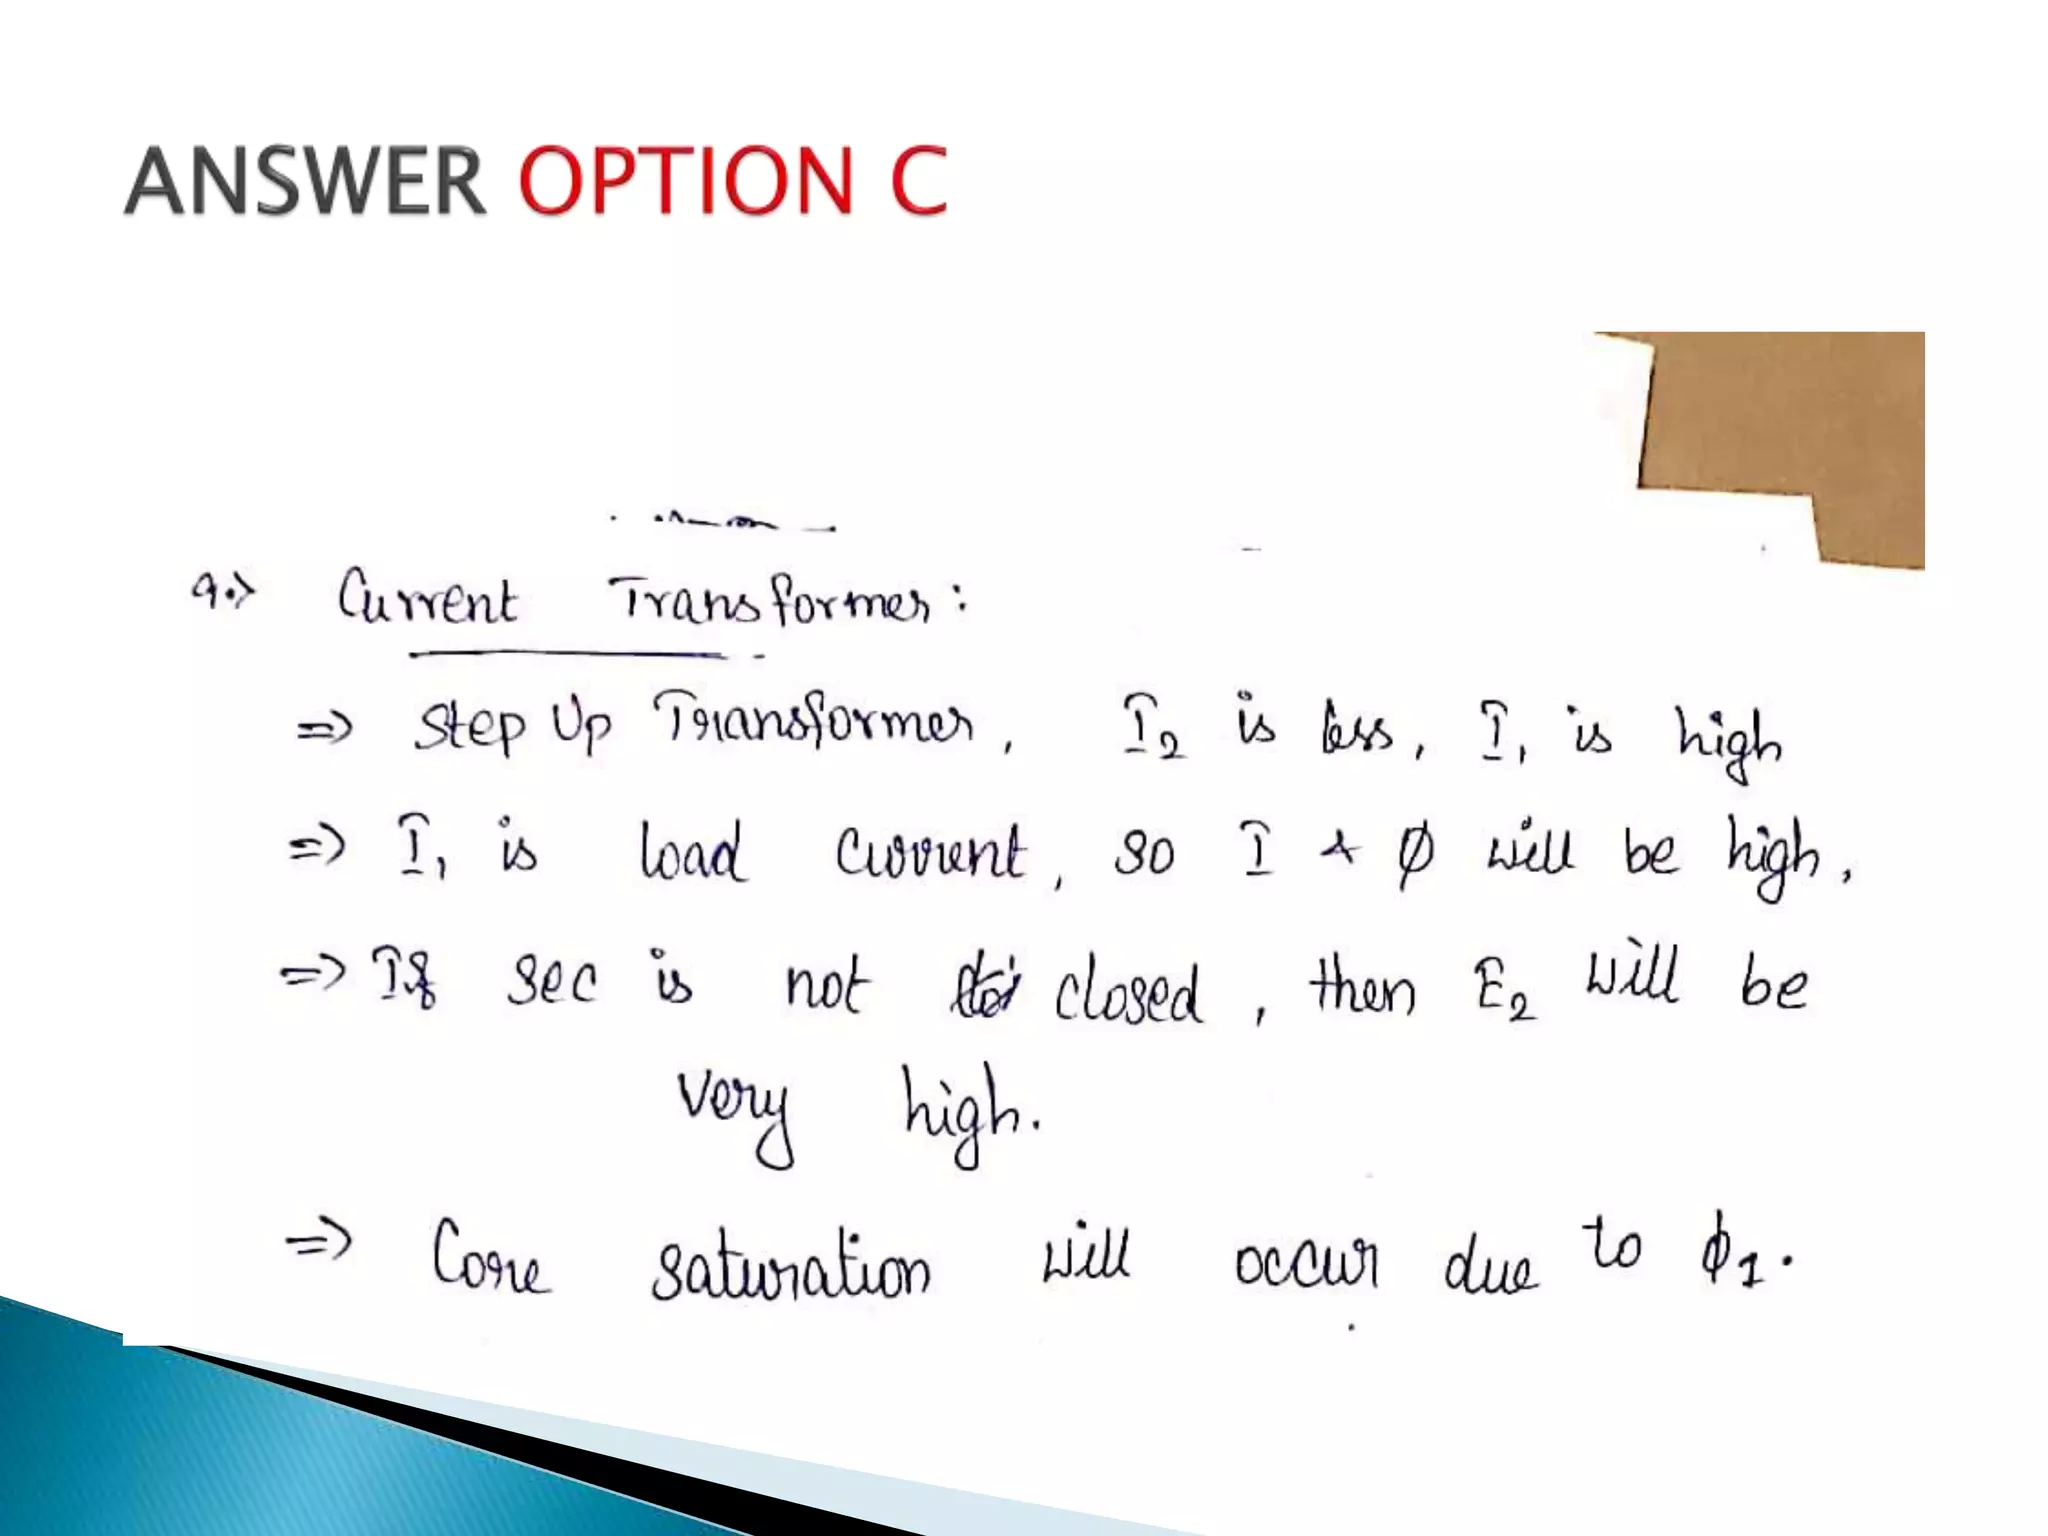 ANSWER OPTION C
9.> Current Transformer:
=> Step Up Transformer, I2 is less, I1 is high
=> I1 is load current, so I & Ø will be high,
=> If sec is not closed, then E2 will be
very high.
=> Core saturation will occur due to ϕ1.